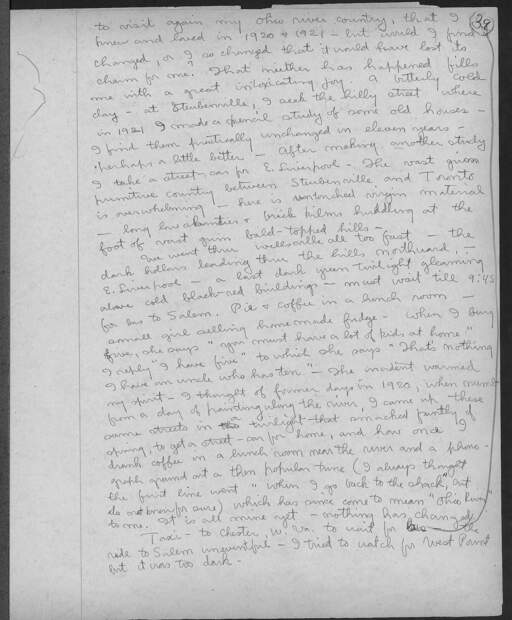 38
to visit again my Ohio river country, that I
knew and loved in 1920 & 1921 - but would I find it
changed, or I so changed that it would have lost its
charm for me? That neither has happened fills
me with a great intoxicating joy. A bitterly cold
day - at Steubenville, I seek the hilly street where
in 1921 I made a pencil study of some old houses -
I find them practically unchanged in eleven years -
perhaps a little better - After making another study
I take a street-car for E. Liverpool - The vast grim
primitive country between Steubenville and Toronto
is overwhelming - here is untouched virgin material
- long low & brick kilns huddling at the
foot of vast grim bald-topped hills -
We went thru Wellsville all too fast - the
dark hollows leading thru the hills northward, -
E. Liverpool - a last dark green twilight gleaming
above cold black-red buildings - must wait till 9:45
for bus to Salem. Pie & coffee in a lunch room -
small girl selling homemade fudge - when I buy
five, she says "you must have a lot of kids at home"
I reply "I have five" to which she says "That's nothing
I have an uncle who has ten." - The incident warmed
my spirit - I thought of former days in 1920, when numb
from a day of painting along the river, I came up these
same streets in twilight that smacked faintly of
spring, to get a street-car for home, and have once I
drank coffee in a lunch room near the river and a phono-
graph ground out a then popular tune (I always thought
the first line went "when I go back to the shack, but
do not know for sure) which has since come to mean "Ohio River"
to me. It is all mine yet - nothing has changed
Taxi - to Chester, W. Va. to wait for bus - the
ride to Salem uneventful - I tried to watch for West Point
but it was too dark -